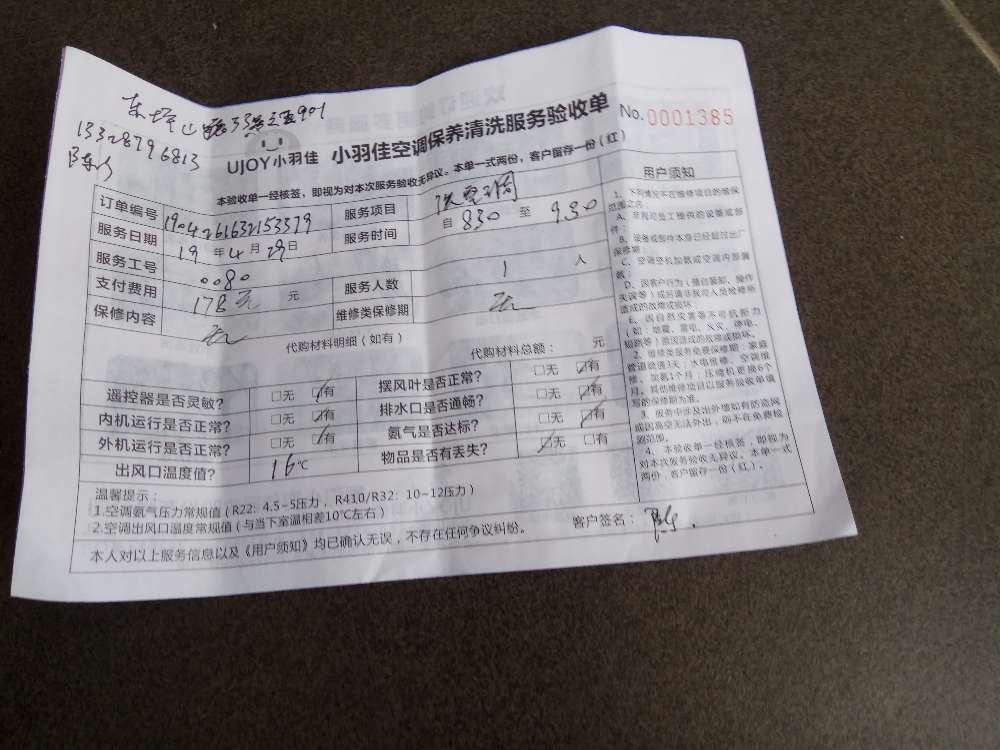 13328796813
UJOY小羽佳 小羽佳空调保养清洗服务验收单 No.0001385
本验收单一经核签，即视为对本次服务验收无异议。本单一式两份，客户留存一份（红）
订单编号 1904261632153379 服务项目
服务日期 19 年 4 月 29 日 服务时间 自 830 至 930
服务工号 0080 服务人数 1 人
支付费用 178元 元 维修类保修期 无
保修内容 无
代购材料明细（如有） 代购材料总额： 元
遥控器是否灵敏？ □无 □有 摆风叶是否正常？ □无 □有
内机运行是否正常？ □无 □有 排水口是否通畅？ □无 □有
外机运行是否正常？ □无 □有 氨气是否达标？ □无 □有
出风口温度值？ 16℃ 物品是否有丢失？ □无 □有
温馨提示：
1.空调氨气压力常规值（R22: 4.5-5压力，R410/R32: 10-12压力）
2.空调出风口温度常规值（与当下室温相差10℃左右）
客户签名：
本人对以上服务信息以及《用户须知》均已确认无误，不存在任何争议纠纷。
用户须知
1、下列情况不在维修项目的维保
范围之内：
A、非我司员工提供的设备或部
件；
B、设备或部件本身已经超过出厂
保修期；
C、空调空机加氨或空调内部漏
氨；
D、因客户行为（擅自装卸、操作
失误等）或后请非我司人员检修所
造成的故障或损坏
E、因自然灾害等不可抗拒力
（如：地震、雷电、火灾、停电、
短路等）原因造成的故障或损坏。
2、维修类服务免费保修期：家庭
管道疏通3天；水电维修、空调维
修、加氨1个月；压缩机更换6个
月。其他维修项目以服务验收单填
写的保修期为准。
3、服务中涉及出外墙如有防盗网
或因高空无法外出，则不在免费检
测范围。
4、本验收单一经核签，即视为
对本次服务验收无异议。本单一式
两份，客户留存一份（红）。